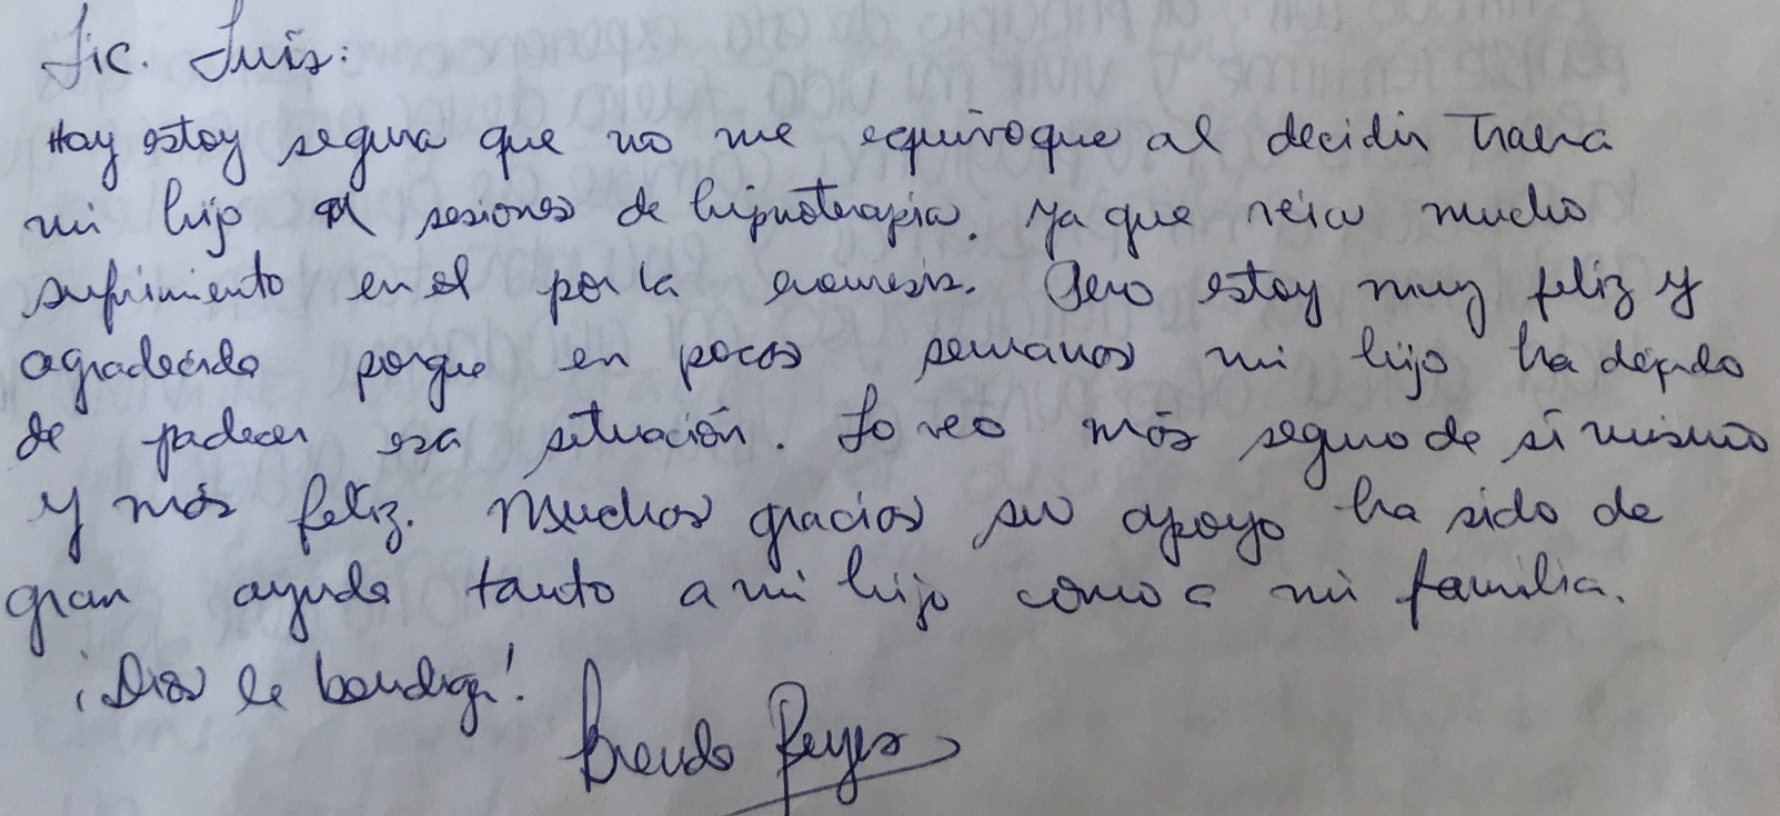 Lic. Luis:
Hoy estoy segura que no me equivoque al decidir traer a
mi hijo a sesiones de hipnoterapia. Ya que veia mucho
sufrimiento en el por la enuresis. Pero estoy muy feliz y
agradecida porque en pocas semanas mi hijo ha dejado
de padecer esa situación. Lo veo más seguro de sí mismo
y más feliz. Muchas gracias su apoyo ha sido de
gran ayuda tanto a mi hijo como a mi familia.
¡Dios le bendiga!
Brenda Reyes